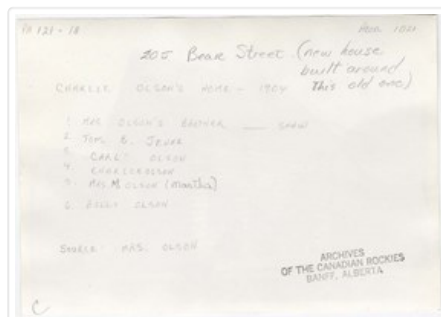 205 Bear Street (new house
built around
This old one)
CHARLIE OLSON'S HOME - 1904
1. MRS OLSON'S BROTHER ___ SHAW
2.
3. CARL OLSON
4. CHARLIE OLSON
5. MRS. M OLSON (Martha)
6. BILLY OLSON
SOURCE: MRS. OLSON
ARCHIVES
OF THE CANADIAN ROCKIES
BANFF, ALBERTA
C